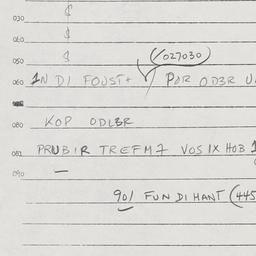 030 $
040 $
050 $ (/027030)
060 1N DI FOUST+ / POR OD3R U
080 KOP ODL3R
081 PRUBIR TREFM7 VOS IX HOB 1
090 —
901 FUN DI HANT (445